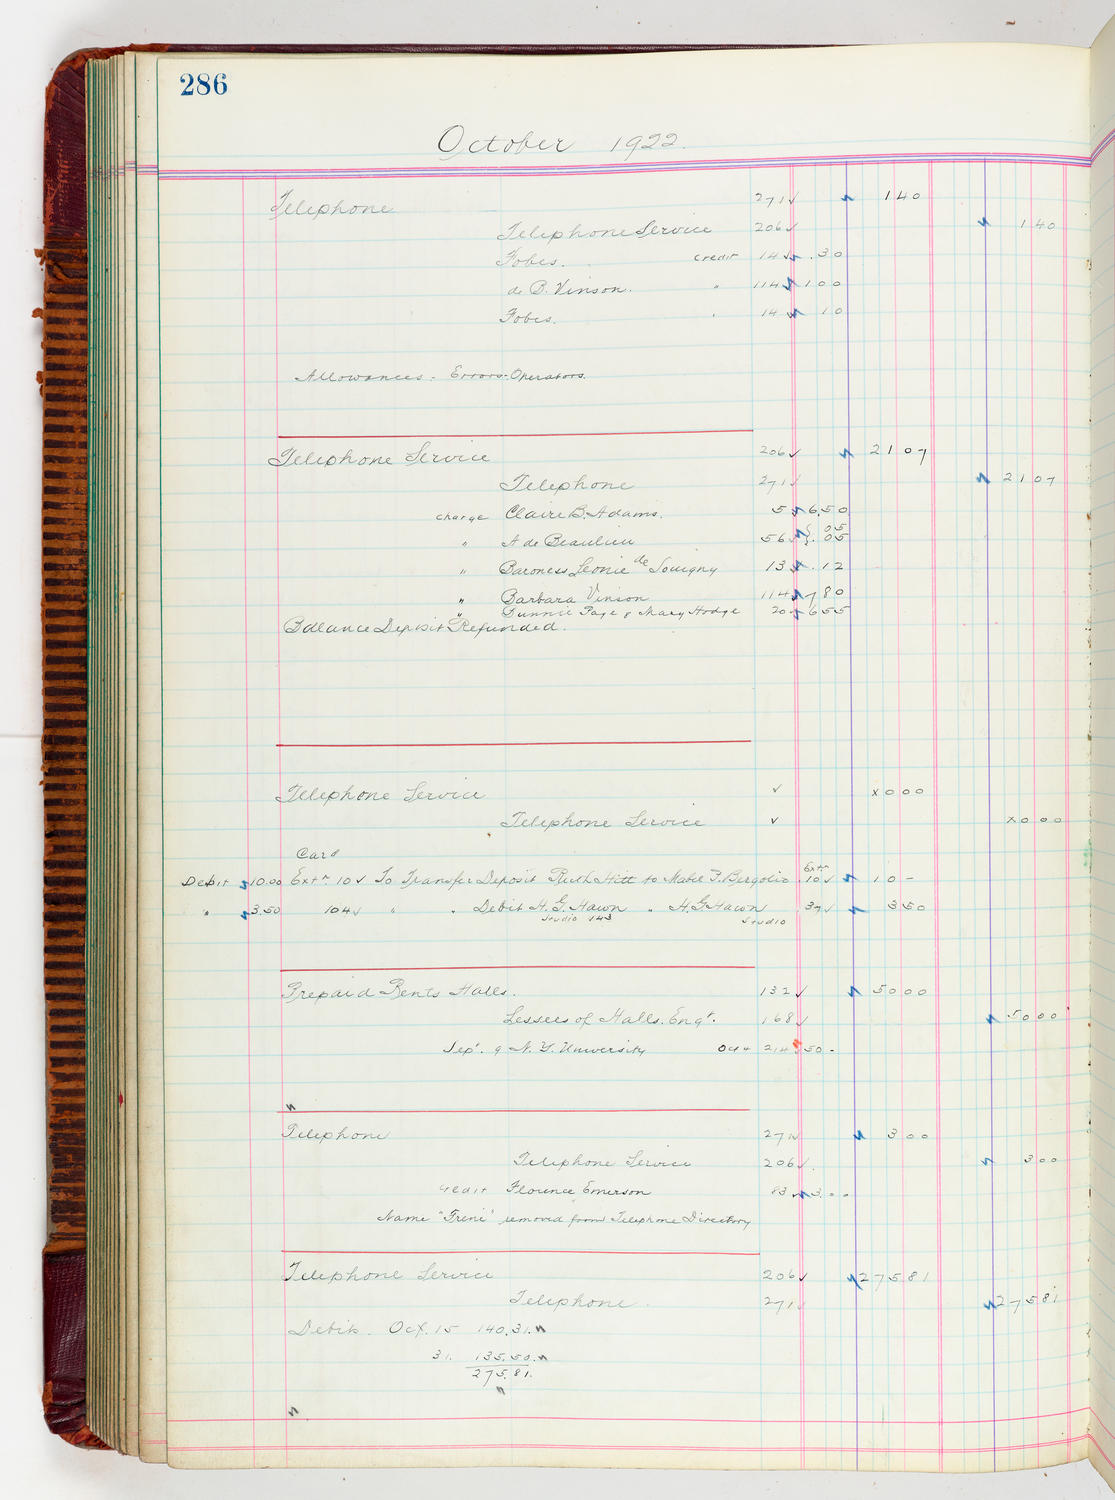 286
October 1922.
Telephone 271 ✓ 1 40
Telephone Service 206 ✓ 1 40
Fobes. credit 14 ✓ .30
de B. Vinson. " 114 ✓ 1 00
Fobes. " 14 10
Allowances - Errors - Operators.
Telephone Service 206 ✓ 21 07
Telephone 271 ✓ 21 07
charge Claire B. Adams. 5 ✓ 6.50
.05
" A de Beaulieu 56 ✓ .05
" Baroness Leonie de Souigny 13 ✓ .12
" Barbara Vinson 114 ✓ 7 80
" Bunnie Page & Mary Hodge 20 ✓ 6 55
Balance Deposit Refunded.
Telephone Service ✓ x0 00
Telephone Service ✓ x0 00
Card
Debit 10.00 Extn 10 ✓ To Transfer Deposit Ruth Hitt to Mabel F. Bergolio Extn 10 ✓ 10 -
" 3.50 104 ✓ " " Debit H. G. Hawn " H. G Hawn 37 ✓ 3 50
Studio 143 Studio
Prepaid Rents Halls. 132 ✓ 50 00
Lessees of Halls. Engt. 168 ✓ 50 00
Sept. 9 N. Y. University Oct 214 ✓ 50 -
Telephone 271 ✓ 3 00
Telephone Service 206 ✓ 3 00
Credit Florence Emerson 83 ✓ 3.00
Name "Irene" removed from Telephone Directory
Telephone Service 206 ✓ 275 81
Telephone. 271 ✓ 275 81
Debits. Oct. 15 140.31.
31. 135.50.
275.81.